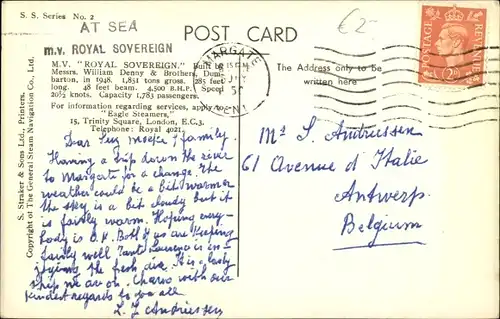 S. S. Series No. 2
AT SEA
M.V. ROYAL SOVEREIGN
POST CARD
€2-
M.V. "ROYAL SOVEREIGN." Built by
Messrs. William Denny & Brothers, Dum-
barton, in 1948. 1,851 tons gross. 285 feet
long. 48 feet beam. 4,500 B.H.P. Speed
20½ knots. Capacity 1,783 passengers.
For information regarding services, apply to:
"Eagle Steamers",
15, Trinity Square, London, E.C.3.
Telephone: Royal 4021.
The Address only to be
written here
MARGATE
KENT
POSTAGE
REVENUE
2D
S. Straker & Sons Ltd., Printers.
Copyright of The General Steam Navigation Co., Ltd.
Dear & family.
Having a trip down the river
to Margate for a change. The
weather could be a bit warmer
the sky is a bit cloudy but it
is fairly warm. Hoping every-
body is O.K. Both of us are keeping
fairly well Tante Laurence is en-
joying the fresh air. It is a lovely
ship we are on. Cheerio with our
kindest regards to you all.
L. L. Andriessen
Mr S. Andriessen
61 Avenue d'Italie
Antwerp.
Belgium